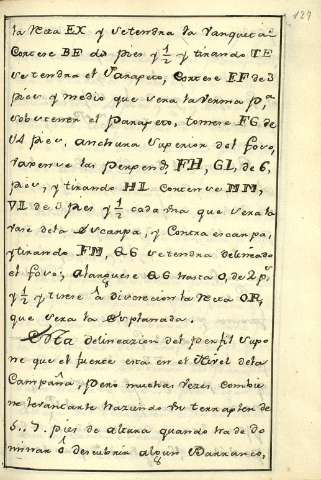 127
la recta EX y se tendra la vanqueta:
Cortese BE de pies y ½ y tirando TE
se tendra el Parapeto, Cortese EF de 3
pies y medio que sera la berma p.ª
sobstener el parapeto, tomese FG de
14 pies, anchura superior del foso,
saquense las perpend.s FH, GL, de 6,
pies, y tirando HL cortense MM,
de 3 pies y ½ cada una que sera la
vase dela Escarpa, y Contraescarpa,
y tirando FM, se tendra delineado
el foso; alarguese hasta O, de 2 p.s
y ½ y tirese á discrecion la recta OR,
que sera la Esplanada.
Esta delineacion del perfil supo
ne que el fuerte esta en el Nivel dela
Campaña, pero muchas vezes combie
ne levantarle haziendo un terraplen de
6..7. pies de altura quando ha de do
minar ó descubrir algun Barranco,